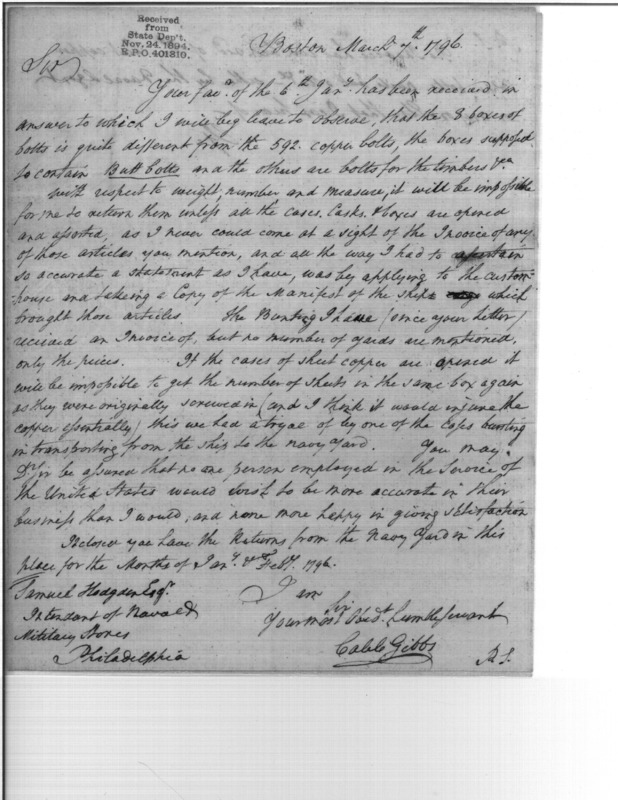 Received
from
State Dep't.
Nov. 24. 1894.
R.P.O. 401310.
Boston March 7th. 1796.
Sir
Your favr. of the 6th Jany. has been received in
answer to which I will beg leave to observe, that the 8 boxes of
bolts is quite different from the 592. copper bolts, the boxes supposed
to contain Butt bolts and the others are bolts for the timbers &ca
With respect to weight, number and measure, it will be impossible
for me to return them unless all the cases, Casks, & boxes are opened
and assorted, as I never could come at a sight of the Invoice of any
of those articles you mention, and all the way I had to
so accurate a statement as I have, was by applying to the custom
house and takeing a Copy of the Manifest of the ships which
brought those articles the Bunting I have (since your Letter)
received an Invoice of, but no number of yards are mentioned,
only the prices. If the cases of sheet copper are opened it
will be impossible to get the number of sheets in the same box again
as they were originally screwed in (and I think it would injure the
copper essentially) this we had a tryal of by one of the Cases bursting
in transporting from the ship to the navy yard. You may
Dr. Sir be assured that no one person employed in the Service of
the United States would wish to be more accurate in their
business than I would, and none more happy in giving satisfaction
Inclosed you have the Returns from the Navy Yard in this
place for the Months of Jany. & Feby. 1796.
Samuel Hodgdon Esqr.
Intendant of Naval &
Military Stores
Philadelphia
I am
Sir
Your most Obedt. humble Servant
Caleb Gibbs